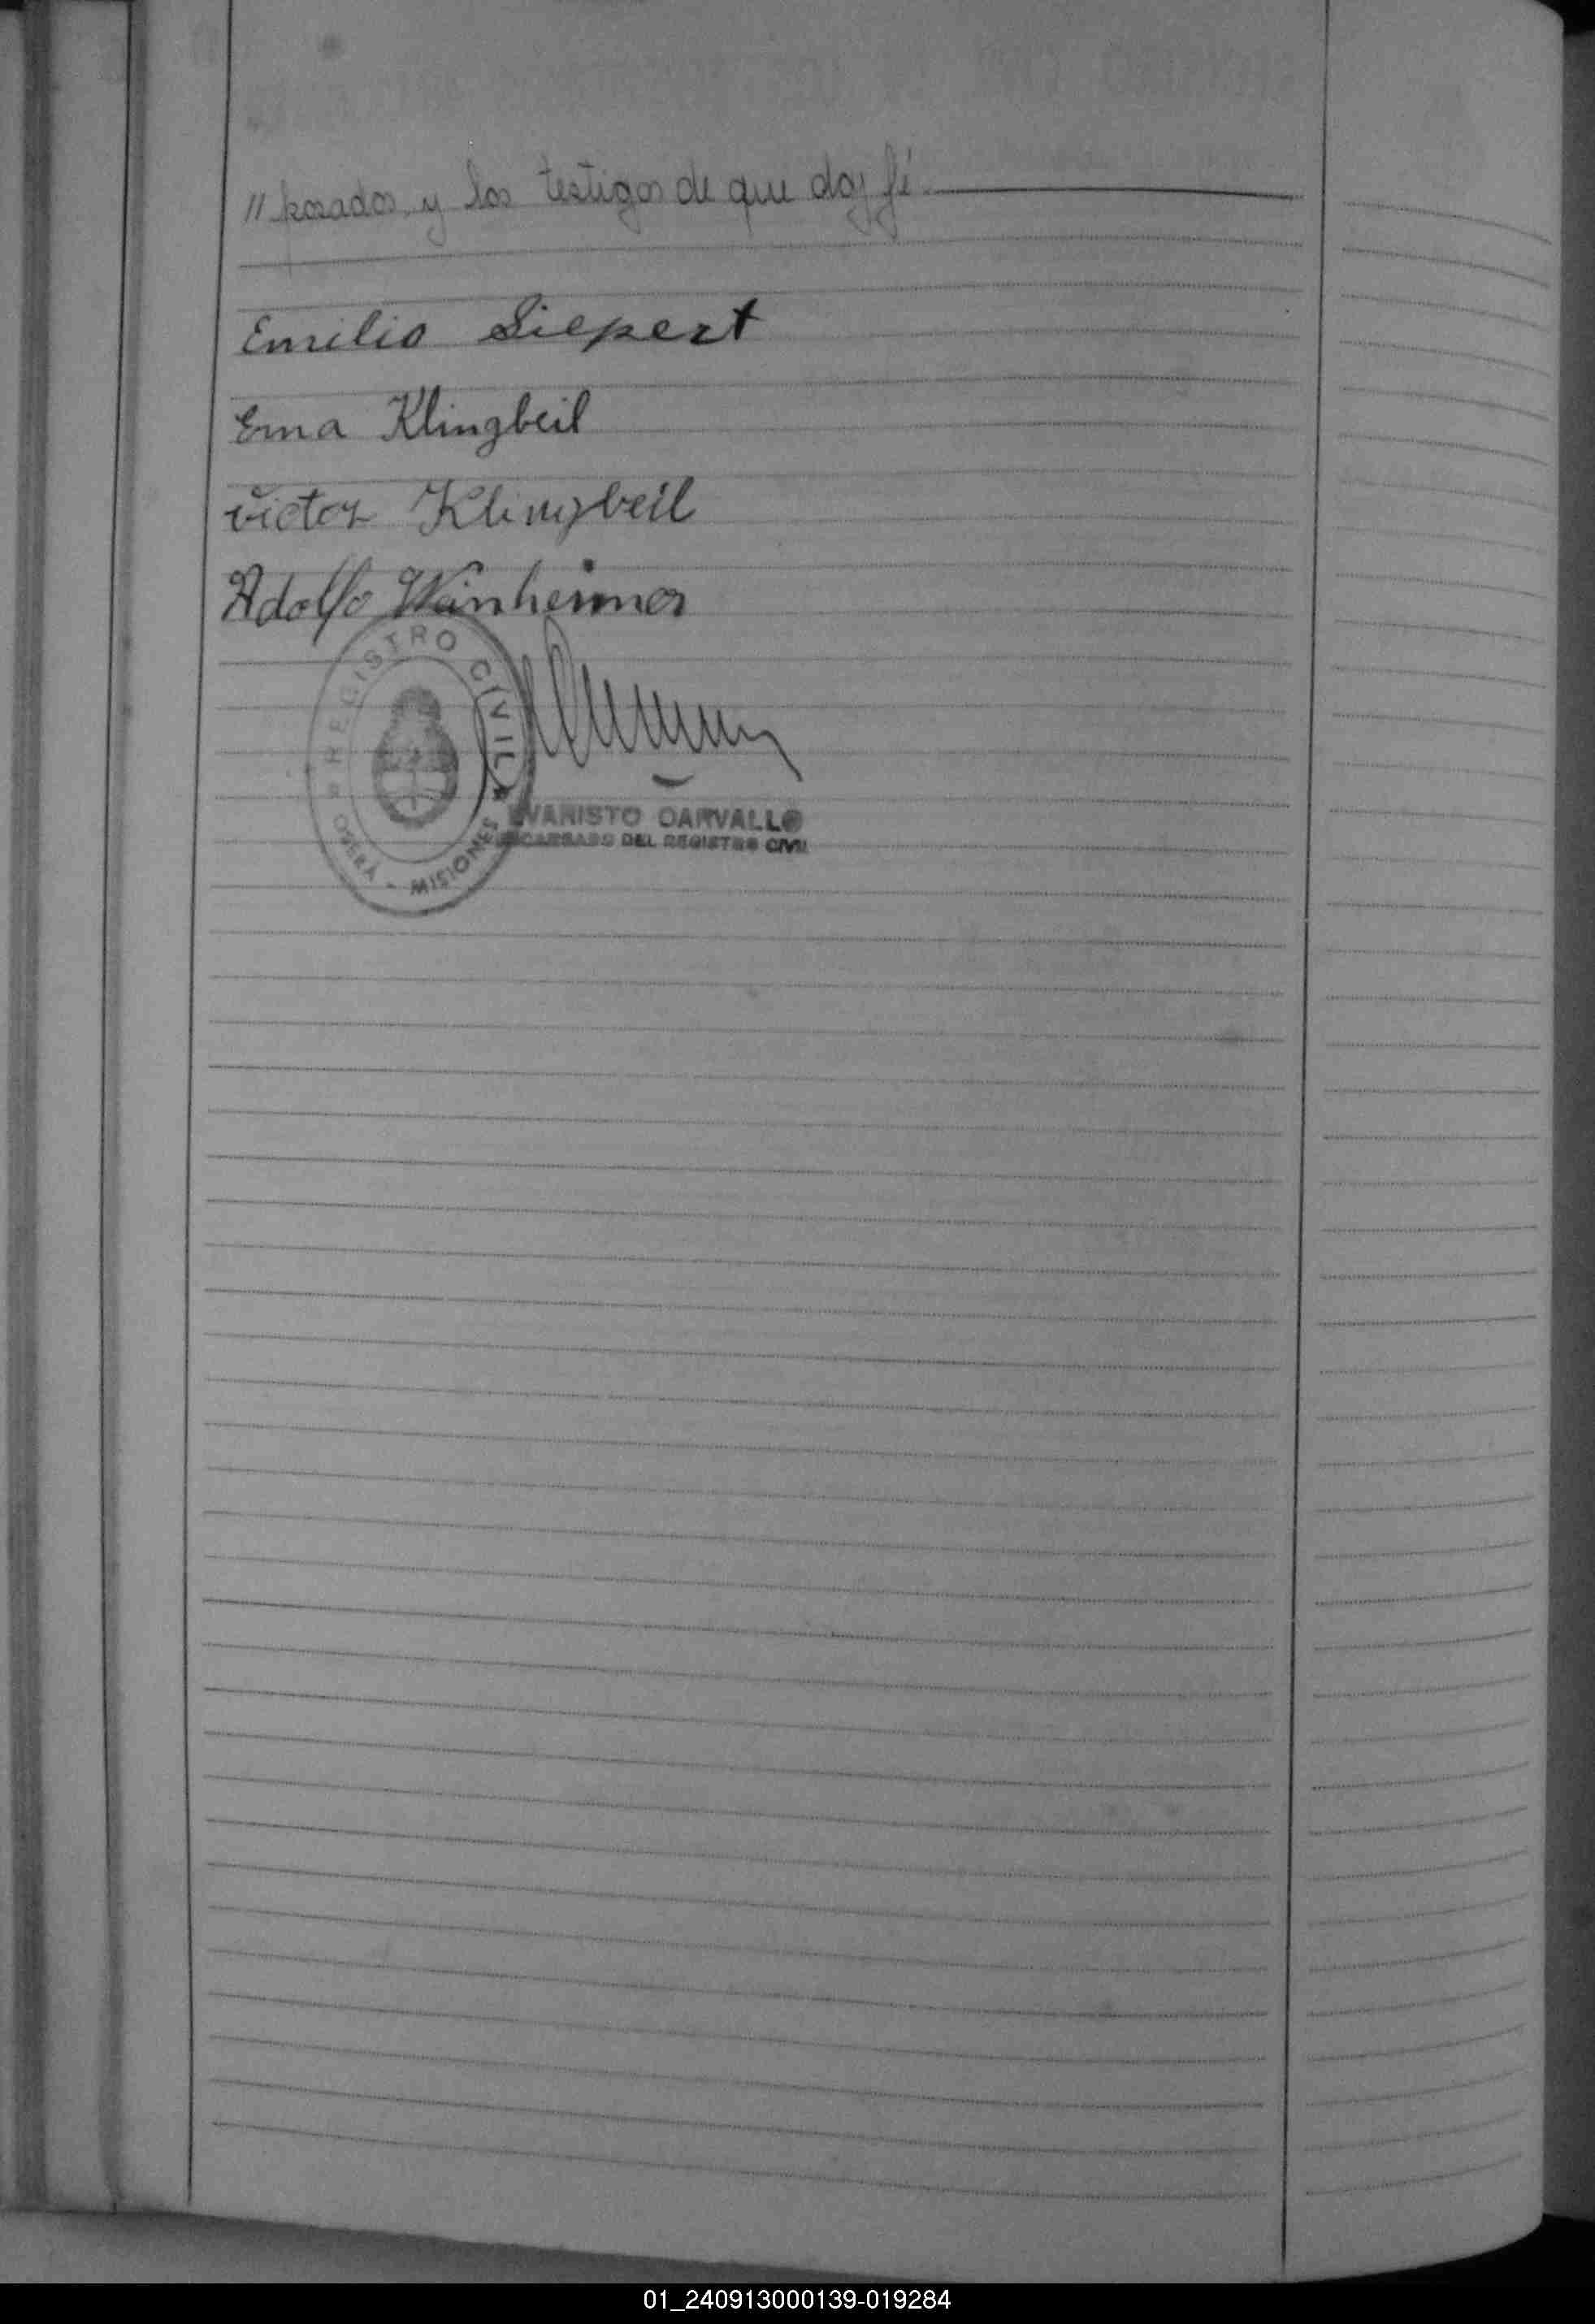 // posados, y los testigos de que doy fé.
Emilio Siepert
Ema Klingbeil
Victor Klingbeil
Adolfo Weinheimer
REGISTRO CIVIL
OBERÁ - MISIONES
EVARISTO CARVALLO
ENCARGADO DEL REGISTRO CIVIL
01_240913000139-019284